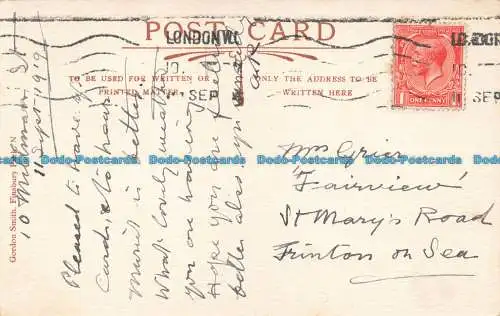 POST CARD
LONDON. W.1
SEP
TO BE USED FOR WRITTEN OR
PRINTED MATTER.
ONLY THE ADDRESS TO BE
WRITTEN HERE
1 ONE PENNY 1
11 SEP
Gordon Smith, Finsbury
St
11 Sept 1919
Pleased to have yr
Card, & to hear
is better
What lovely weather
you are having
Hope you are feeling
better also
Mrs Grier
'Fairview'
St Mary's Road
Frinton on Sea
Dodo-Postcards Dodo-Postcards Dodo-Postcards Dodo-Postcards